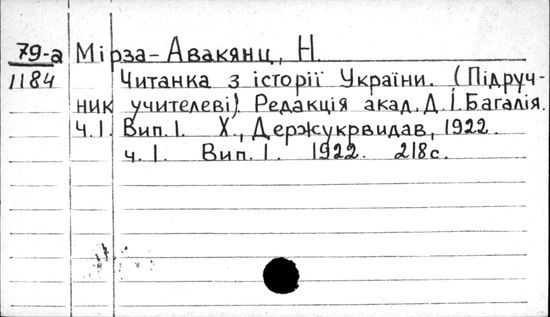 79-а Мірза-Авакянц, Н.
1184 Читанка з історії України. (Підруч-
ник учителеві). Редакція акад. Д.І. Багалія.
ч.І. Вип.І. Х., Держукрвидав, 1922.
ч.І. Вип.І. 1922. 218с.